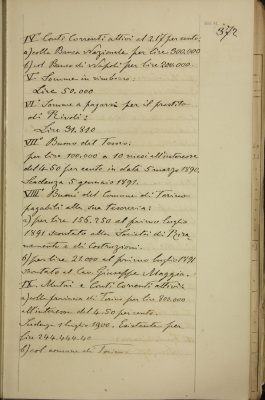 372
IV.° Conti Correnti attivi al 2.1/4 per cento:
a) colla Banca Nazionale per lire 300,000
b) col Banco di Napoli per lire 200.000.
V.° Somme in rimborso:
Lire 50.000
VI.° Somme a pagarsi per il prestito
di Rivoli:
Lire 31.810
VII.° Buono del Tesoro:
per lire 100,000 a 10 mesi all'interesse
del 4.50 per cento in data 5 marzo 1890,
scadenza 5 gennaio 1891.
VIII.° Buoni del Comune di Torino
pagabili alla sua tesoreria:
a) per lire 156.250 al primo luglio
1891 scontato alla Società di Risa
namento e di Costruzioni.
b) per lire 21.000 al primo luglio 1891
scontato al Cav. Giuseppe Maggia.
IX. Mutui e Conti Correnti attivi:
a) colla provincia di Torino per lire 800.000
all'interesse del 4.50 per cento.
Scadenza luglio 1900. Esistente per
lire 244.444.40
b) col comune di Torino